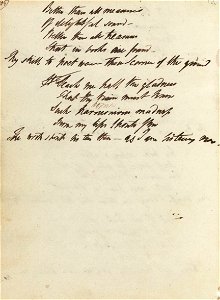 Better than all measures
Of delightful sound —
Better than all treasures
That in books are found —
Thy skill to poet were thou scorner of the ground
Teach me half the gladness
That thy brain must know
Such harmonious madness
From my lips should flow
The world should listen then — as I am listening now